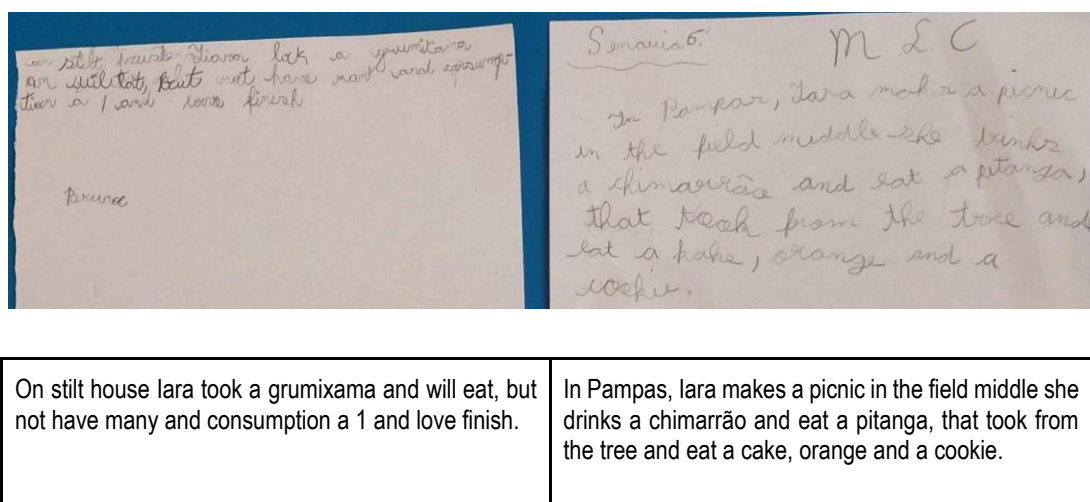 on stilt house Iara took a grumixama
an will eat, But not have many and consump-
tion a 1 and love finish
Bruno
Senario 6:
M L C
In Pampas, Iara makes a picnic
in the field middle she drinks
a chimarrão and eat a pitanga,
that took from the tree and
eat a kake, orange and a
cookie.
On stilt house Iara took a grumixama and will eat, but
not have many and consumption a 1 and love finish.
In Pampas, Iara makes a picnic in the field middle she
drinks a chimarrão and eat a pitanga, that took from
the tree and eat a cake, orange and a cookie.